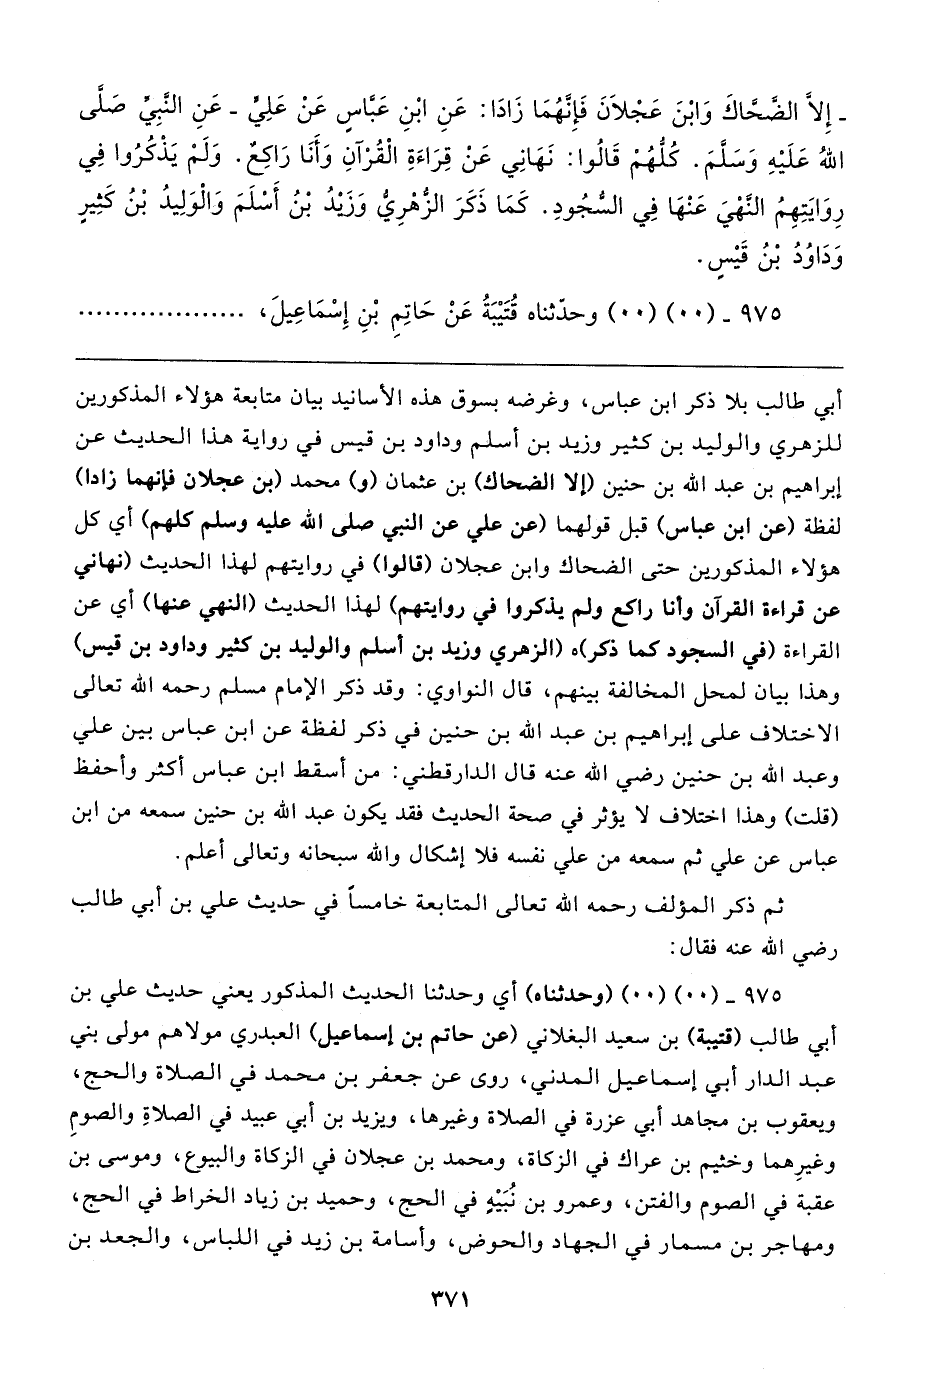 ـ إِلاَّ الضَّحَّاكَ وَابْنَ عَجْلاَنَ فَإِنَّهُمَا زَادَا: عَنِ ابْنِ عَبَّاسٍ عَنْ عَلِيٍّ ـ عَنِ النَّبِيِّ صَلَّى
اللهُ عَلَيْهِ وَسَلَّمَ. كُلُّهُمْ قَالُوا: نَهَانِي عَنْ قِرَاءَةِ الْقُرْآنِ وَأَنَا رَاكِعٌ. وَلَمْ يَذْكُرُوا فِي
رِوَايَتِهِمُ النَّهْيَ عَنْهَا فِي السُّجُودِ. كَمَا ذَكَرَ الزُّهْرِيُّ وَزَيْدُ بْنُ أَسْلَمَ وَالْوَلِيدُ بْنُ كَثِيرٍ
وَدَاوُدُ بْنُ قَيْسٍ.
٩٧٥ ـ (٠٠) (٠٠) وحدّثناه قُتَيْبَةُ عَنْ حَاتِمِ بْنِ إِسْمَاعِيلَ، ...................
أبي طالب بلا ذكر ابن عباس، وغرضه بسوق هذه الأسانيد بيان متابعة هؤلاء المذكورين
للزهري والوليد بن كثير وزيد بن أسلم وداود بن قيس في رواية هذا الحديث عن
إبراهيم بن عبد الله بن حنين (إلا الضحاك) بن عثمان (و) محمد (بن عجلان فإنهما زادا)
لفظة (عن ابن عباس) قبل قولهما (عن علي عن النبي صلى الله عليه وسلم كلهم) أي كل
هؤلاء المذكورين حتى الضحاك وابن عجلان (قالوا) في روايتهم لهذا الحديث (نهاني
عن قراءة القرآن وأنا راكع ولم يذكروا في روايتهم) لهذا الحديث (النهي عنها) أي عن
القراءة (في السجود كما ذكر)ه (الزهري وزيد بن أسلم والوليد بن كثير وداود بن قيس)
وهذا بيان لمحل المخالفة بينهم، قال النواوي: وقد ذكر الإمام مسلم رحمه الله تعالى
الاختلاف على إبراهيم بن عبد الله بن حنين في ذكر لفظة عن ابن عباس بين علي
وعبد الله بن حنين رضي الله عنه قال الدارقطني: من أسقط ابن عباس أكثر وأحفظ
(قلت) وهذا اختلاف لا يؤثر في صحة الحديث فقد يكون عبد الله بن حنين سمعه من ابن
عباس عن علي ثم سمعه من علي نفسه فلا إشكال والله سبحانه وتعالى أعلم.
ثم ذكر المؤلف رحمه الله تعالى المتابعة خامساً في حديث علي بن أبي طالب
رضي الله عنه فقال:
٩٧٥ ـ (٠٠) (٠٠) (وحدثناه) أي وحدثنا الحديث المذكور يعني حديث علي بن
أبي طالب (قتيبة) بن سعيد البغلاني (عن حاتم بن إسماعيل) العبدري مولاهم مولى بني
عبد الدار أبي إسماعيل المدني، روى عن جعفر بن محمد في الصلاة والحج،
ويعقوب بن مجاهد أبي عزرة في الصلاة وغيرها، ويزيد بن أبي عبيد في الصلاةِ والصومِ
وغيرِهما وخثيم بن عراك في الزكاة، ومحمد بن عجلان في الزكاة والبيوع، وموسى بن
عقبة في الصوم والفتن، وعمرو بن نُبَيْهٍ في الحج، وحميد بن زياد الخراط في الحج،
ومهاجر بن مسمار في الجهاد والحوض، وأسامة بن زيد في اللباس، والجعد بن
٣٧١